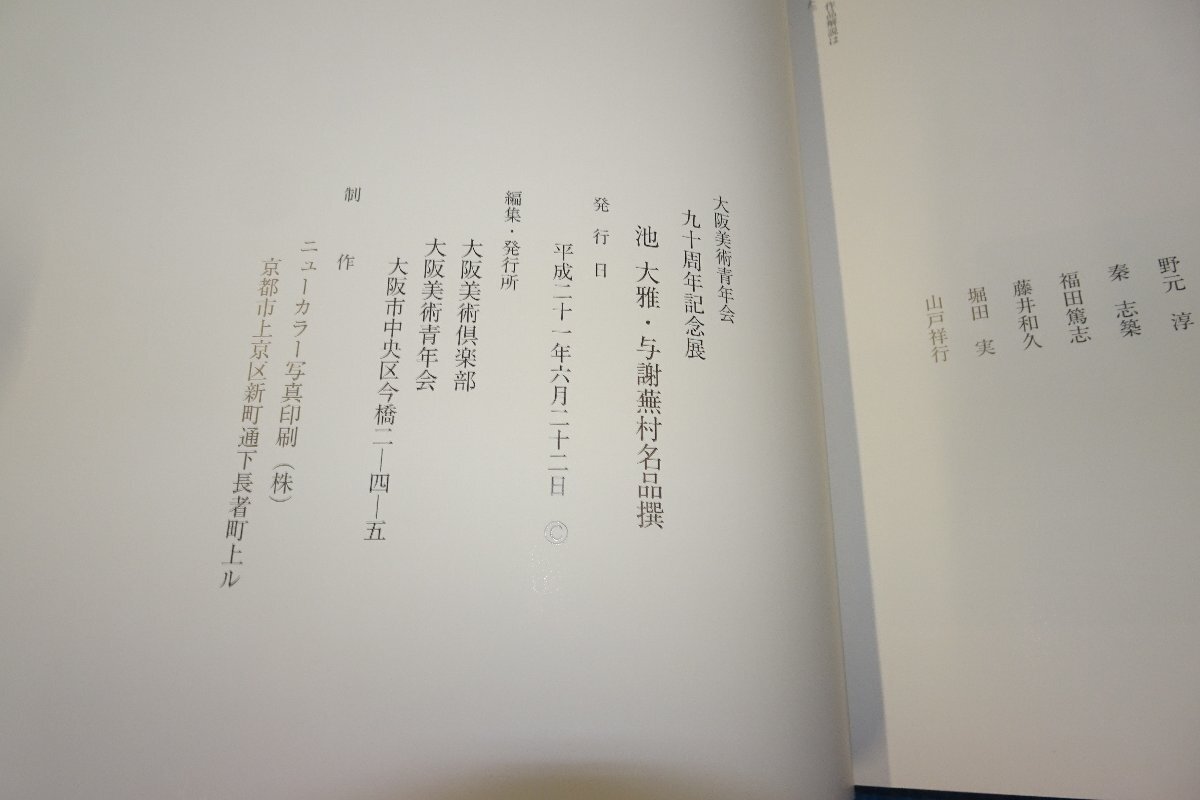 作品解説は
野元　淳
秦　志築
福田篤志
藤井和久
堀田　実
山戸祥行
大阪美術青年会
九十周年記念展
池 大雅・与謝蕪村名品撰
発行日
平成二十一年六月二十二日　©
編集・発行所
大阪美術倶楽部
大阪美術青年会
大阪市中央区今橋二―四―五
制　作
ニューカラー写真印刷（株）
京都市上京区新町通下長者町上ル